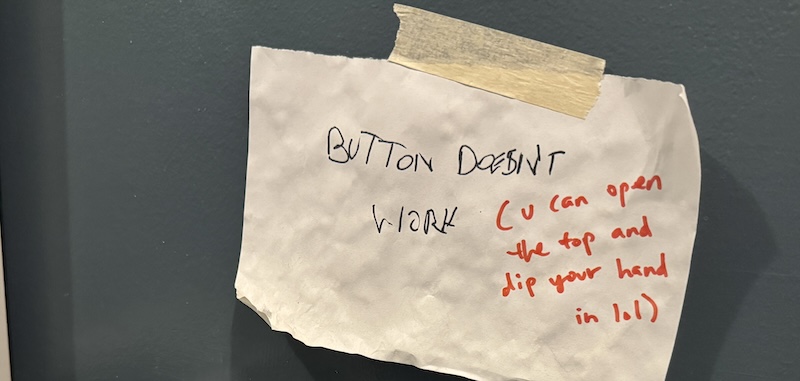 BUTTON DOESN'T
WORK
(u can open
the top and
dip your hand
in lol)